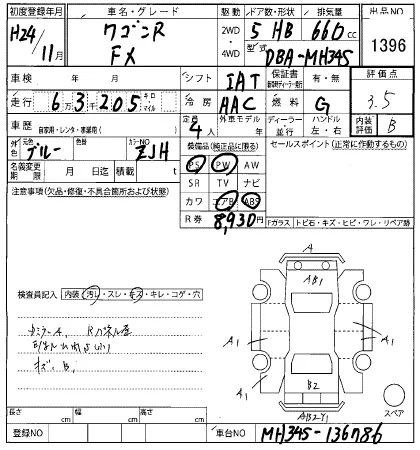 初度登録年月 車名・グレード 駆動 ドア数・形状 排気量 出品NO
H24/11月 ワゴンR FX 2WD・4WD 5 HB 660cc
型式 DBA-MH34S 1396
車検 年 月 シフト IAT 保証書 有・無 評価点
走行 6万3千205 キロ マイル 冷房 AAC 燃料 G 3.5
車歴 自家用・レンタ・事業用( ) 定員 4人 外車モデル 年 ディーラー 並行 ハンドル 左・右 内装評価 B
外色 元色 ブルー 色替 カラーNO ZJH 装備品(純正品に限る) セールスポイント(正常に作動するもの)
名義変更期限 月 日迄 積載 t PS PW AW
注意事項(欠品・修復・不具合箇所および状態) SR TV ナビ
カワ エアB ABS
R券 8,930円 Fガラス トビ石・キズ・ヒビ・ワレ・リペア跡
A
AB1
検査員記入 内装(汚れ・スレ・キズ・キレ・コゲ・穴
A1 A1
A1
B2
AB2Y1
スペア
長さ cm 幅 cm 高さ cm
登録NO 車台NO MH34S-136786